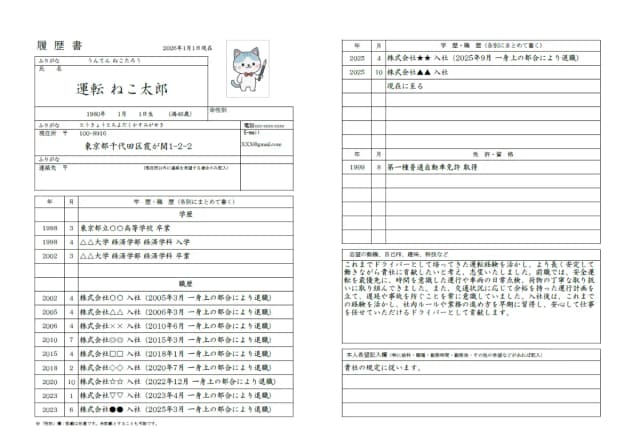 履歴書
2026年1月1日現在
ふりがな
うんてん ねこたろう
氏 名
運転 ねこ太郎
1980年 1月 1日生 (満46歳)
※性別
ふりがな
とうきょうとちよだくかすみがせき
現住所 〒
100-8916
東京都千代田区霞が関1-2-2
電話xxx-xxxx-xxxx
E-mail
XXX@gmail.com
ふりがな
連絡先 〒
(現住所以外に連絡を希望する場合のみ記入)
電話
年 月 学 歴・職 歴 (各別にまとめて書く)
学歴
1998 3 東京都立〇〇高等学校 卒業
1998 4 △△大学 経済学部 経済学科 入学
2002 3 △△大学 経済学部 経済学科 卒業
職歴
2002 4 株式会社〇〇 入社 (2005年3月 一身上の都合により退職)
2005 4 株式会社△△ 入社 (2006年3月 一身上の都合により退職)
2006 4 株式会社×× 入社 (2010年6月 一身上の都合により退職)
2010 7 株式会社◎◎ 入社 (2015年3月 一身上の都合により退職)
2015 4 株式会社□□ 入社 (2018年1月 一身上の都合により退職)
2018 2 株式会社◇◇ 入社 (2020年7月 一身上の都合により退職)
2020 10 株式会社☆☆ 入社 (2022年12月 一身上の都合により退職)
2023 1 株式会社▽▽ 入社 (2023年4月 一身上の都合により退職)
2023 6 株式会社●● 入社 (2025年3月 一身上の都合により退職)
※「性別」欄:記載は任意です。未記載とすることも可能です。
年 月 学 歴・職 歴 (各別にまとめて書く)
2025 4 株式会社★★ 入社 (2025年9月 一身上の都合により退職)
2025 10 株式会社▲▲ 入社
現在に至る
年 月 免 許・資 格
1999 8 第一種普通自動車免許 取得
志望の動機、自己PR、趣味、特技など
これまでドライバーとして培ってきた運転経験を活かし、より長く安定して
働きながら貴社に貢献したいと考え、志望いたしました。前職では、安全運
転を最優先に、時間を意識した運行や車両の日常点検、荷物の丁寧な取り扱
いに取り組んできました。また、交通状況に応じて余裕を持った運行計画を
立て、遅延や事故を防ぐことを常に意識していました。入社後は、これまで
の経験を活かし、社内ルールや業務の進め方を早期に習得し、安心して仕事
を任せていただけるドライバーとして貢献します。
本人希望記入欄 (特に給料・職種・勤務時間・勤務地・その他の希望などがあれば記入)
貴社の規定に従います。